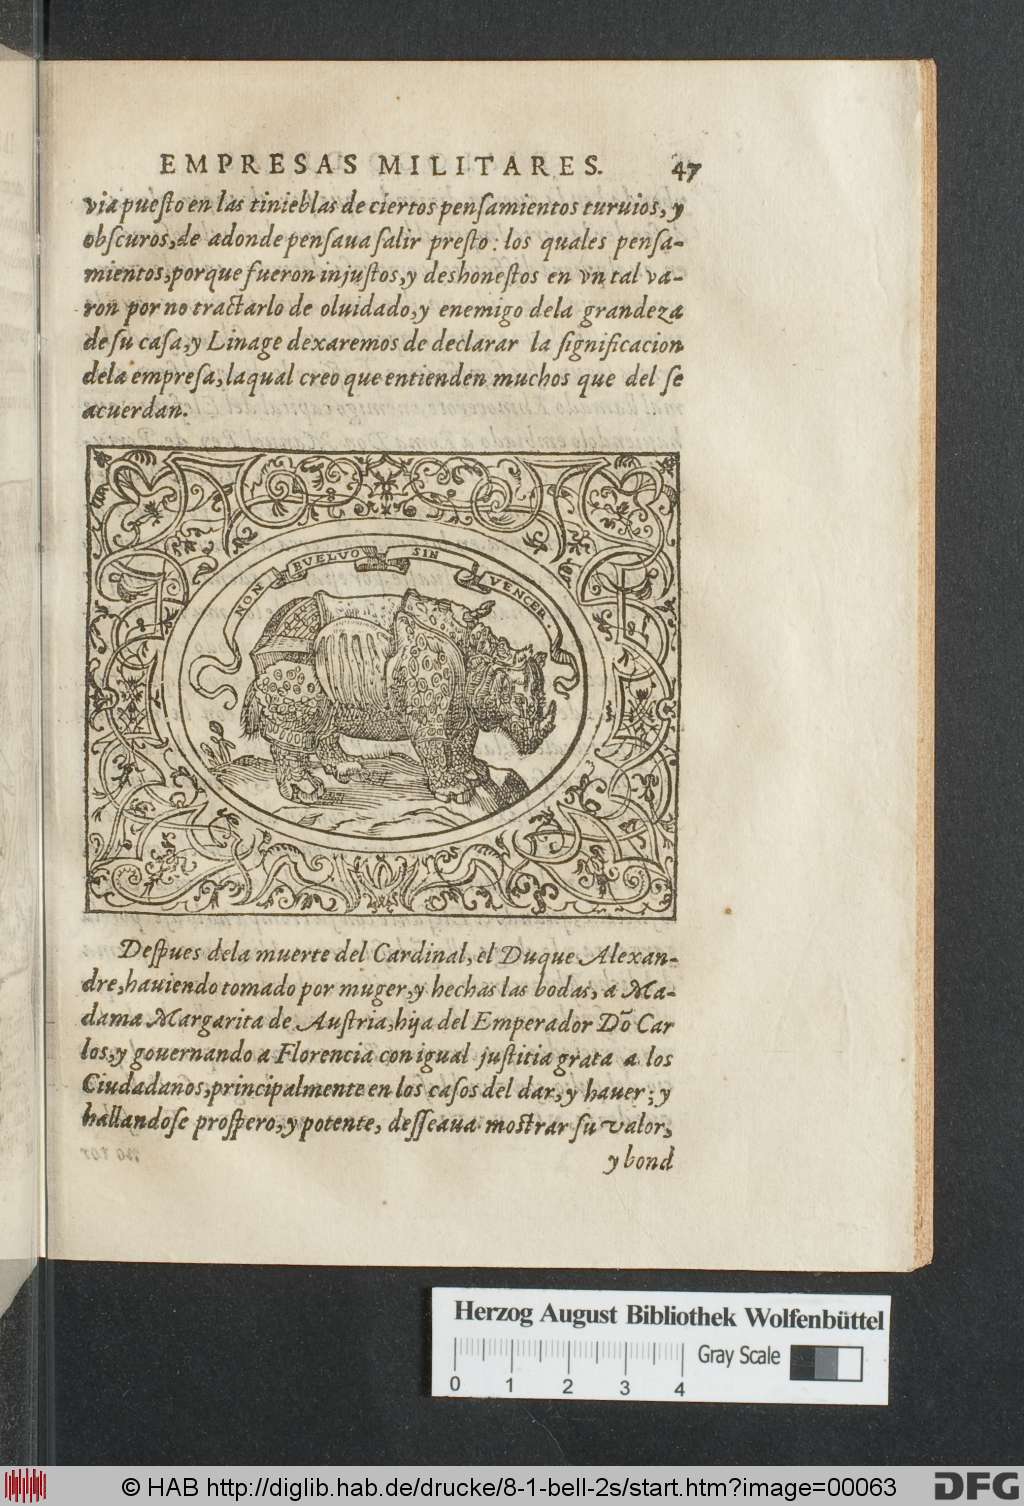 EMPRESAS MILITARES. 47
via puesto en las tinieblas de ciertos pensamientos turuios, y
obscuros, de adonde pensaua salir presto: los quales pensa-
mientos, porque fueron injustos, y deshonestos en vn tal va-
ron por no tractarlo de oluidado, y enemigo dela grandeza
de su casa, y Linage dexaremos de declarar la significacion
dela empresa, laqual creo que entienden muchos que del se
acuerdan.
NON BVELVO SIN VENCER.
Despues dela muerte del Cardinal, el Duque Alexan-
dre, hauiendo tomado por muger, y hechas las bodas, a Ma-
dama Margarita de Austria, hija del Emperador Dõ Car
los, y gouernando a Florencia con igual justitia grata a los
Ciudadanos, principalmente en los casos del dar, y hauer; y
hallandose prospero, y potente, desseaua mostrar su valor,
y bond
Herzog August Bibliothek Wolfenbüttel
Gray Scale
0 1 2 3 4
© HAB http://diglib.hab.de/drucke/8-1-bell-2s/start.htm?image=00063
DFG